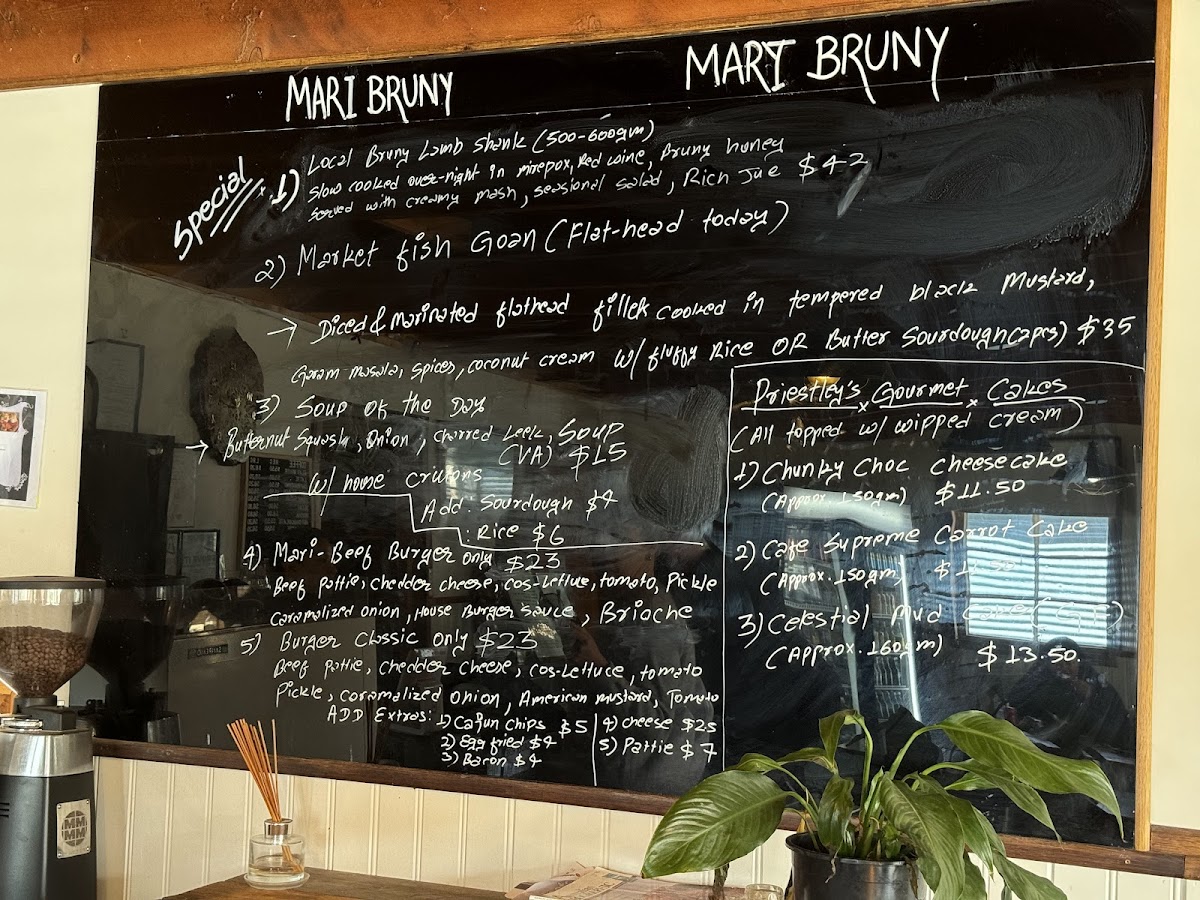 MARI BRUNY
MARI BRUNY
Special
1) Local Bruny Lamb Shank (500-600gm)
Slow cooked over-night in mirepox, Red wine, Bruny huney
Served with creamy mash, seasional salad, Rich Jue $42
2) Market fish Goan (Flat-head today)
→ Diced & Marinated flathead fillet cooked in tempered black Mustard,
Garam masala, spices, coconut cream w/ fluffy Rice OR Butter Sourdough(2pcs) $35
3) Soup of the Day
→ Butternut Squash, Onion, charred Leek, Soup
(VA) $15
w/ home crutons
Add: Sourdough $4
: Rice $6
4) Mari-Beef Burger only $23
Beef pattie, chedder cheese, cos-lettuce, tomato, Pickle
caramalized onion, House Burger sauce, Brioche
5) Burger Classic only $23
Beef pattie, chedder cheese, cos-Lettuce, tomato
Pickle, caramalized onion, American mustard, Tomato
ADD Extras: 1) Cajun chips $5
2) Egg fried $4
3) Bacon $4
4) cheese
5) Pattie $7
Priestley's x Gourmet x Cakes
(All topped w/ wipped cream)
1) Chunky Choc cheesecake
(Approx. 150gm) $11.50
2) Cafe Supreme Carrot Cake
(Approx. 150gm)
3) Celestial Mud
(Approx. 160gm) $13.50.
MM
MM